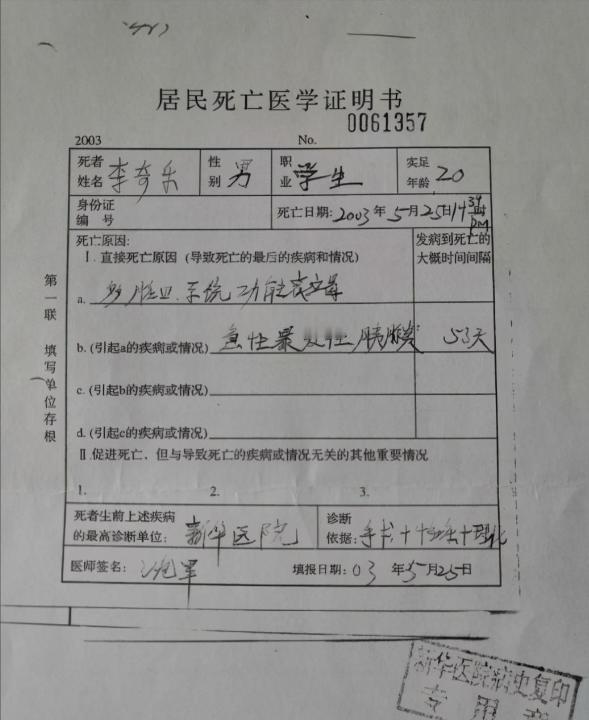 居民死亡医学证明书
0061357
2003 No.
死者姓名 李奇乐 性别 男 职业 学生 实足年龄 20
身份证编号 死亡日期: 2003 年 5 月 25 日
死亡原因: 发病到死亡的大概时间间隔
Ⅰ. 直接死亡原因 (导致死亡的最后的疾病和情况)
a. 多脏器系统功能衰竭
b. (引起a的疾病或情况) 急性暴发性胰腺炎 53天
c. (引起b的疾病或情况)
d. (引起c的疾病或情况)
Ⅱ.促进死亡、但与导致死亡的疾病或情况无关的其他重要情况
1. 2. 3.
死者生前上述疾病的最高诊断单位: 新华医院 诊断依据: 手术+
医师签名: 填报日期: 03 年 5 月 25 日
第一联 填写单位存根
新华医院病史复印
专用章